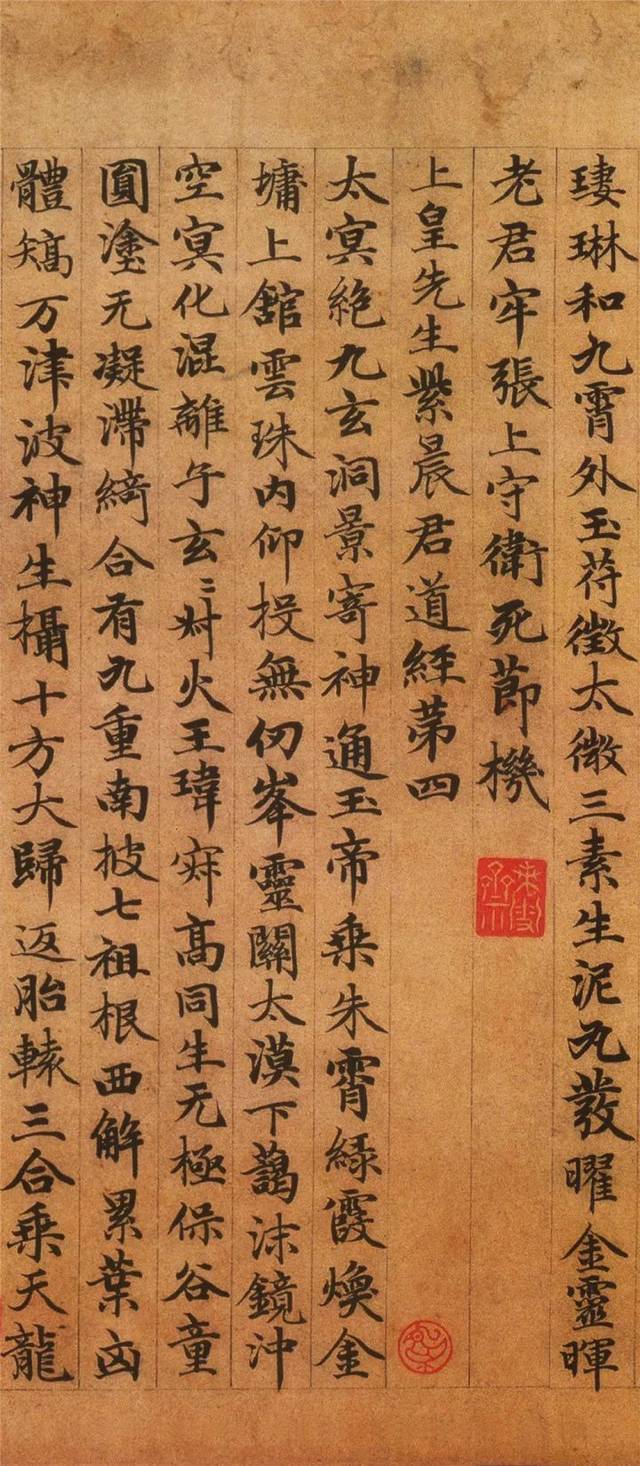 琳和九霄外玉苻徵太微三素生泥丸發曜金靈暉
老君牢張上守衛死莭機
上皇先生紫晨君道經苐四
太冥絶九玄洞景寄神通玉帝乗朱霄緑霞煥金
墉上舘雲珠内仰投無仞峯靈關太漠下藹沫鏡沖
空冥化混離子玄〻火王瑋寂高同生无極保谷童
圓塗无凝滯綺合有九重南披七祖根西解累葉凶
體矯万津波神生攝十方大歸返胎轅三合乗天龍